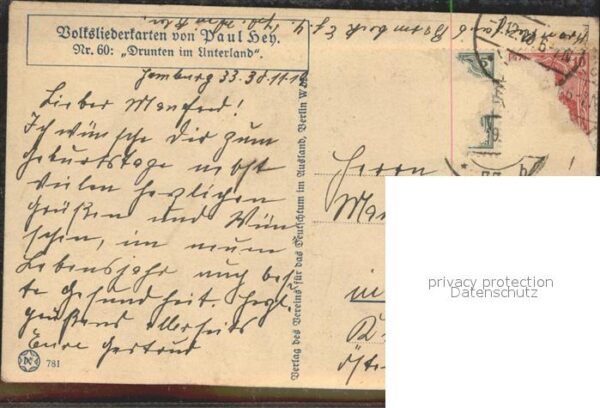 Volksliederkarten von Paul Hey.
Nr. 60: „Drunten im Unterland“.
Hamburg 33. 30.11.19
Lieber Manfred!
Ich wünsche dir zum
Geburtstage nebst
vielen herzlichen
Grüßen und Wün-
schen, im neuen
Lebensjahr auch bes-
te Gesundheit. Herzl.
Grüßend allerseits
Eure Gertrud
781
Verlag des Vereins für das Deutschtum im Ausland, Berlin W
Herrn
Ma
in
Öste
privacy protection
Datenschutz